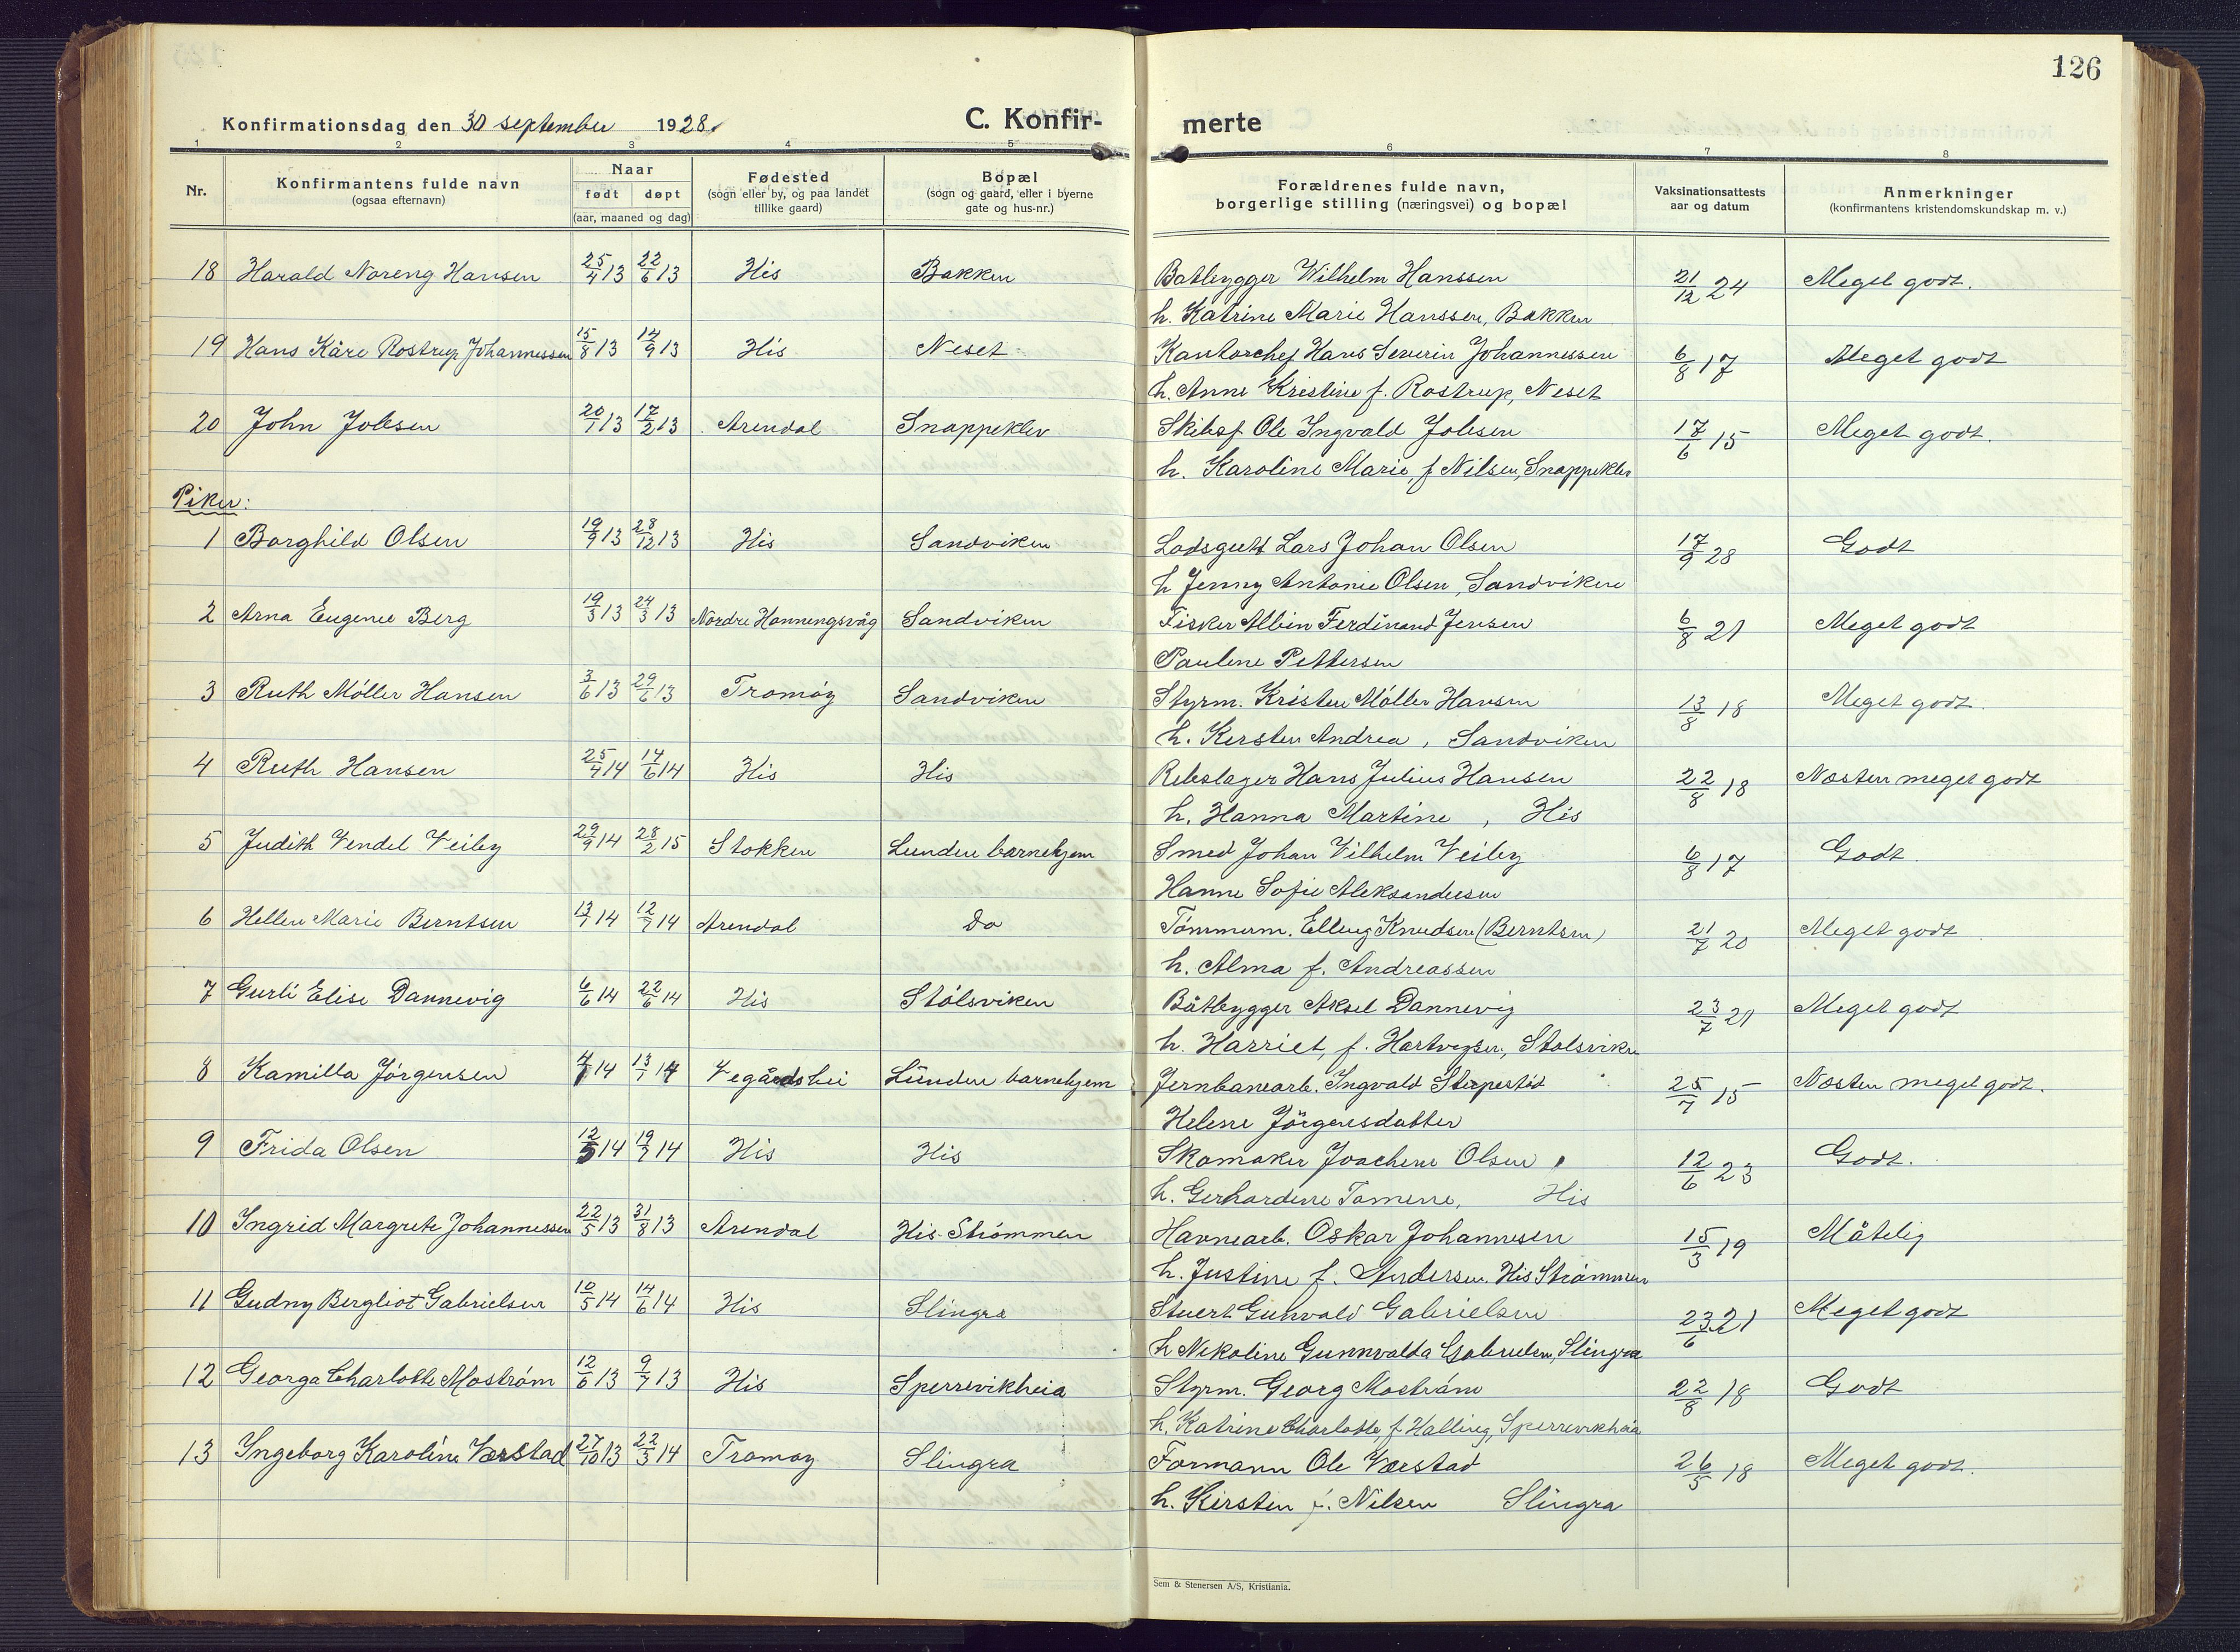 126
Konfirmationsdag den 30 september 1928.
C. Konfir-
merte
1 2 3 4 5 6 7 8
Nr.
Konfirmantens fulde navn
(ogsaa efternavn)
Naar
født døpt
(aar, maaned og dag)
Fødested
(sogn eller by, og paa landet
tillike gaard)
Bopæl
(sogn og gaard, eller i byerne
gate og hus-nr.)
Forældrenes fulde navn,
borgerlige stilling (næringsvei) og bopæl
Vaksinationsattests
aar og datum
Anmerkninger
(konfirmantens kristendomskundskap m. v.)
18 Harald Noreng Hansen 25/4 13 22/6 13 His Bakken Baatbygger Wilhelm Hanssen 21/12 24 Meget godt.
h. Katrine Marie Hanssen, Bakken
19 Hans Kåre Rostrup Johannessen 15/8 13 14/9 13 His Neset Kontorchef Hans Severin Johannessen 6/8 17 Meget godt
h. Anne Kristine f. Rostrup, Neset
20 John Jolesen 20/1 13 17/2 13 Arendal Snappeklev Skibsf. Ole Ingvald Jolesen 17/6 15 Meget godt.
h. Karoline Marie, f Nilsen, Snappeklev
Piker:
1 Borghild Olsen 19/9 13 28/12 13 His Sandviken Lodsgutt Lars Johan Olsen 17/9 28 Godt
h Jenny Antonie Olsen, Sandviken
2 Arna Eugenie Berg 19/3 13 24/3 13 Nordre Honningsvåg Sandviken Fisker Albin Ferdinand Jensen 6/8 21 Meget godt
Pauline Pettersen
3 Ruth Møller Hansen 3/6 13 29/6 13 Tromøy Sandviken Styrm. Kristen Møller Hansen 13/8 18 Meget godt.
h. Kersten Andrea, Sandviken
4 Ruth Hansen 25/4 14 14/6 14 His His Rebslager Hans Julius Hansen 22/8 18 Næsten meget godt
h. Hanna Martine, His
5 Judith Vendel Veiby 29/9 14 28/2 15 Stokken Lunden barnehjem Smed Johan Vilhelm Veiby 6/8 17 Godt.
Hanne Sofie Aleksandersen
6 Hellen Marie Berntsen 13/1 14 12/7 14 Arendal Do Tømmerm. Elling Knudsen (Berntsen) 21/7 20 Meget godt
h. Alma f. Andreassen
7 Gurli Elise Dannevig 6/6 14 22/6 14 His Stølsviken Båtbygger Aksel Dannevig 23/7 21 Meget godt
h. Harriet, f. Hartvigsen, Stølsviken
8 Kamilla Jørgensen 14 13/ 14 Vegårdshei Lunden barnehjem Jernbanearb. Ingvald 25/7 15 Næsten meget godt.
Helene Jörgensdatter
9 Frida Olsen 12/5 14 19/7 14 His His Skomaker Joachim Olsen 12/6 23 Godt.
h. Gerhardine Tomene, His
10 Ingrid Margrete Johannessen 22/5 13 31/8 13 Arendal His-Strømmen Havnearb. Oskar Johannesen 15/3 19 Måtelig
h. Justine f. Andersen His Strømmen
11 Gudny Bergliot Gabrielsen 10/5 14 14/6 14 His Slingra Stuert Gunvald Gabrielsen 23/6 21 Meget godt
h Nikoline Gunnvalda Gabrielsen, Slingra
12 Georga Charlotte Mostrøm 12/6 13 9/7 13 His Sperrevikheia Styrm. Georg Mostrøm 22/8 18 Godt
h. Katrine Charlotte, f Halling, Sperrevikheia
13 Ingeborg Karoline Værstad 27/10 13 22/3 14 Tromøy Slingra Formann Ole Værstad 26/5 18 Meget godt.
h. Kirsten f. Nilsen Slingra
Sem & Stenersen A/S, Kristiania.